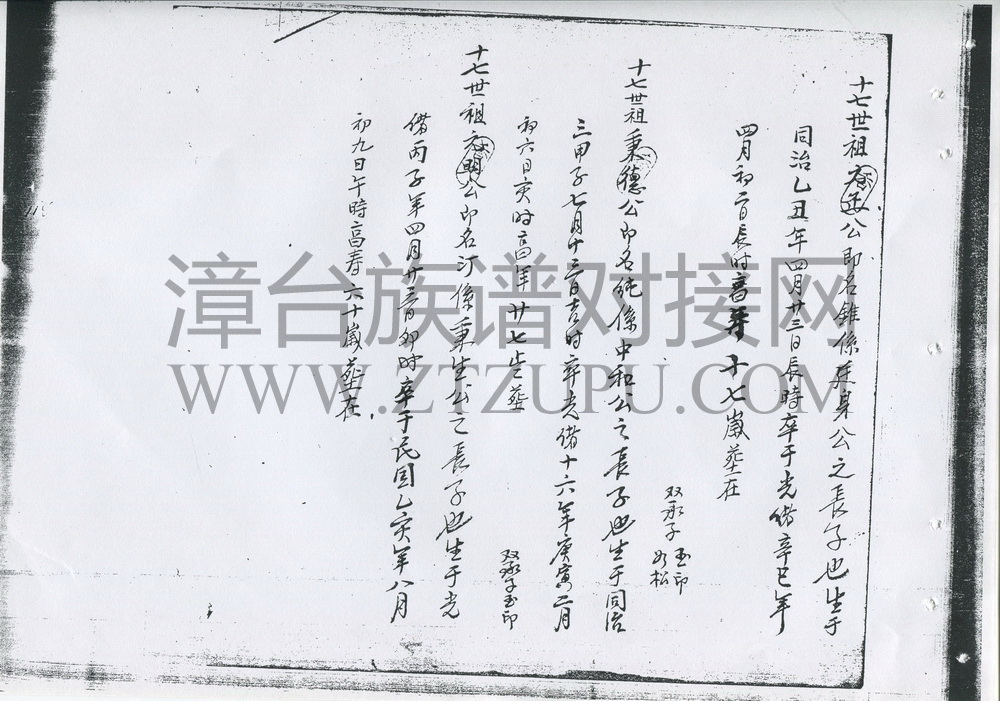 十七世祖公即名錐係廷臬公之長子也生于
同治乙丑年四月廿三日長時卒于光緒辛巳年
四月初二日長时高年十七歲塟在
双承子 玉印
如松
十七世祖秉德公即名純係中和公之長子也生于同治
三甲子七月十三日吉时卒光緒十六年庚寅二月
初六日亥时高年廿七生塟
双承子玉印
十七世祖明公即名汀係秉生公之長子也生于光
緒丙子年四月廿三日卯时卒于民国乙亥年八月
初九日午時高寿六十歲塟在
漳台族谱对接网
WWW.ZTZUPU.COM